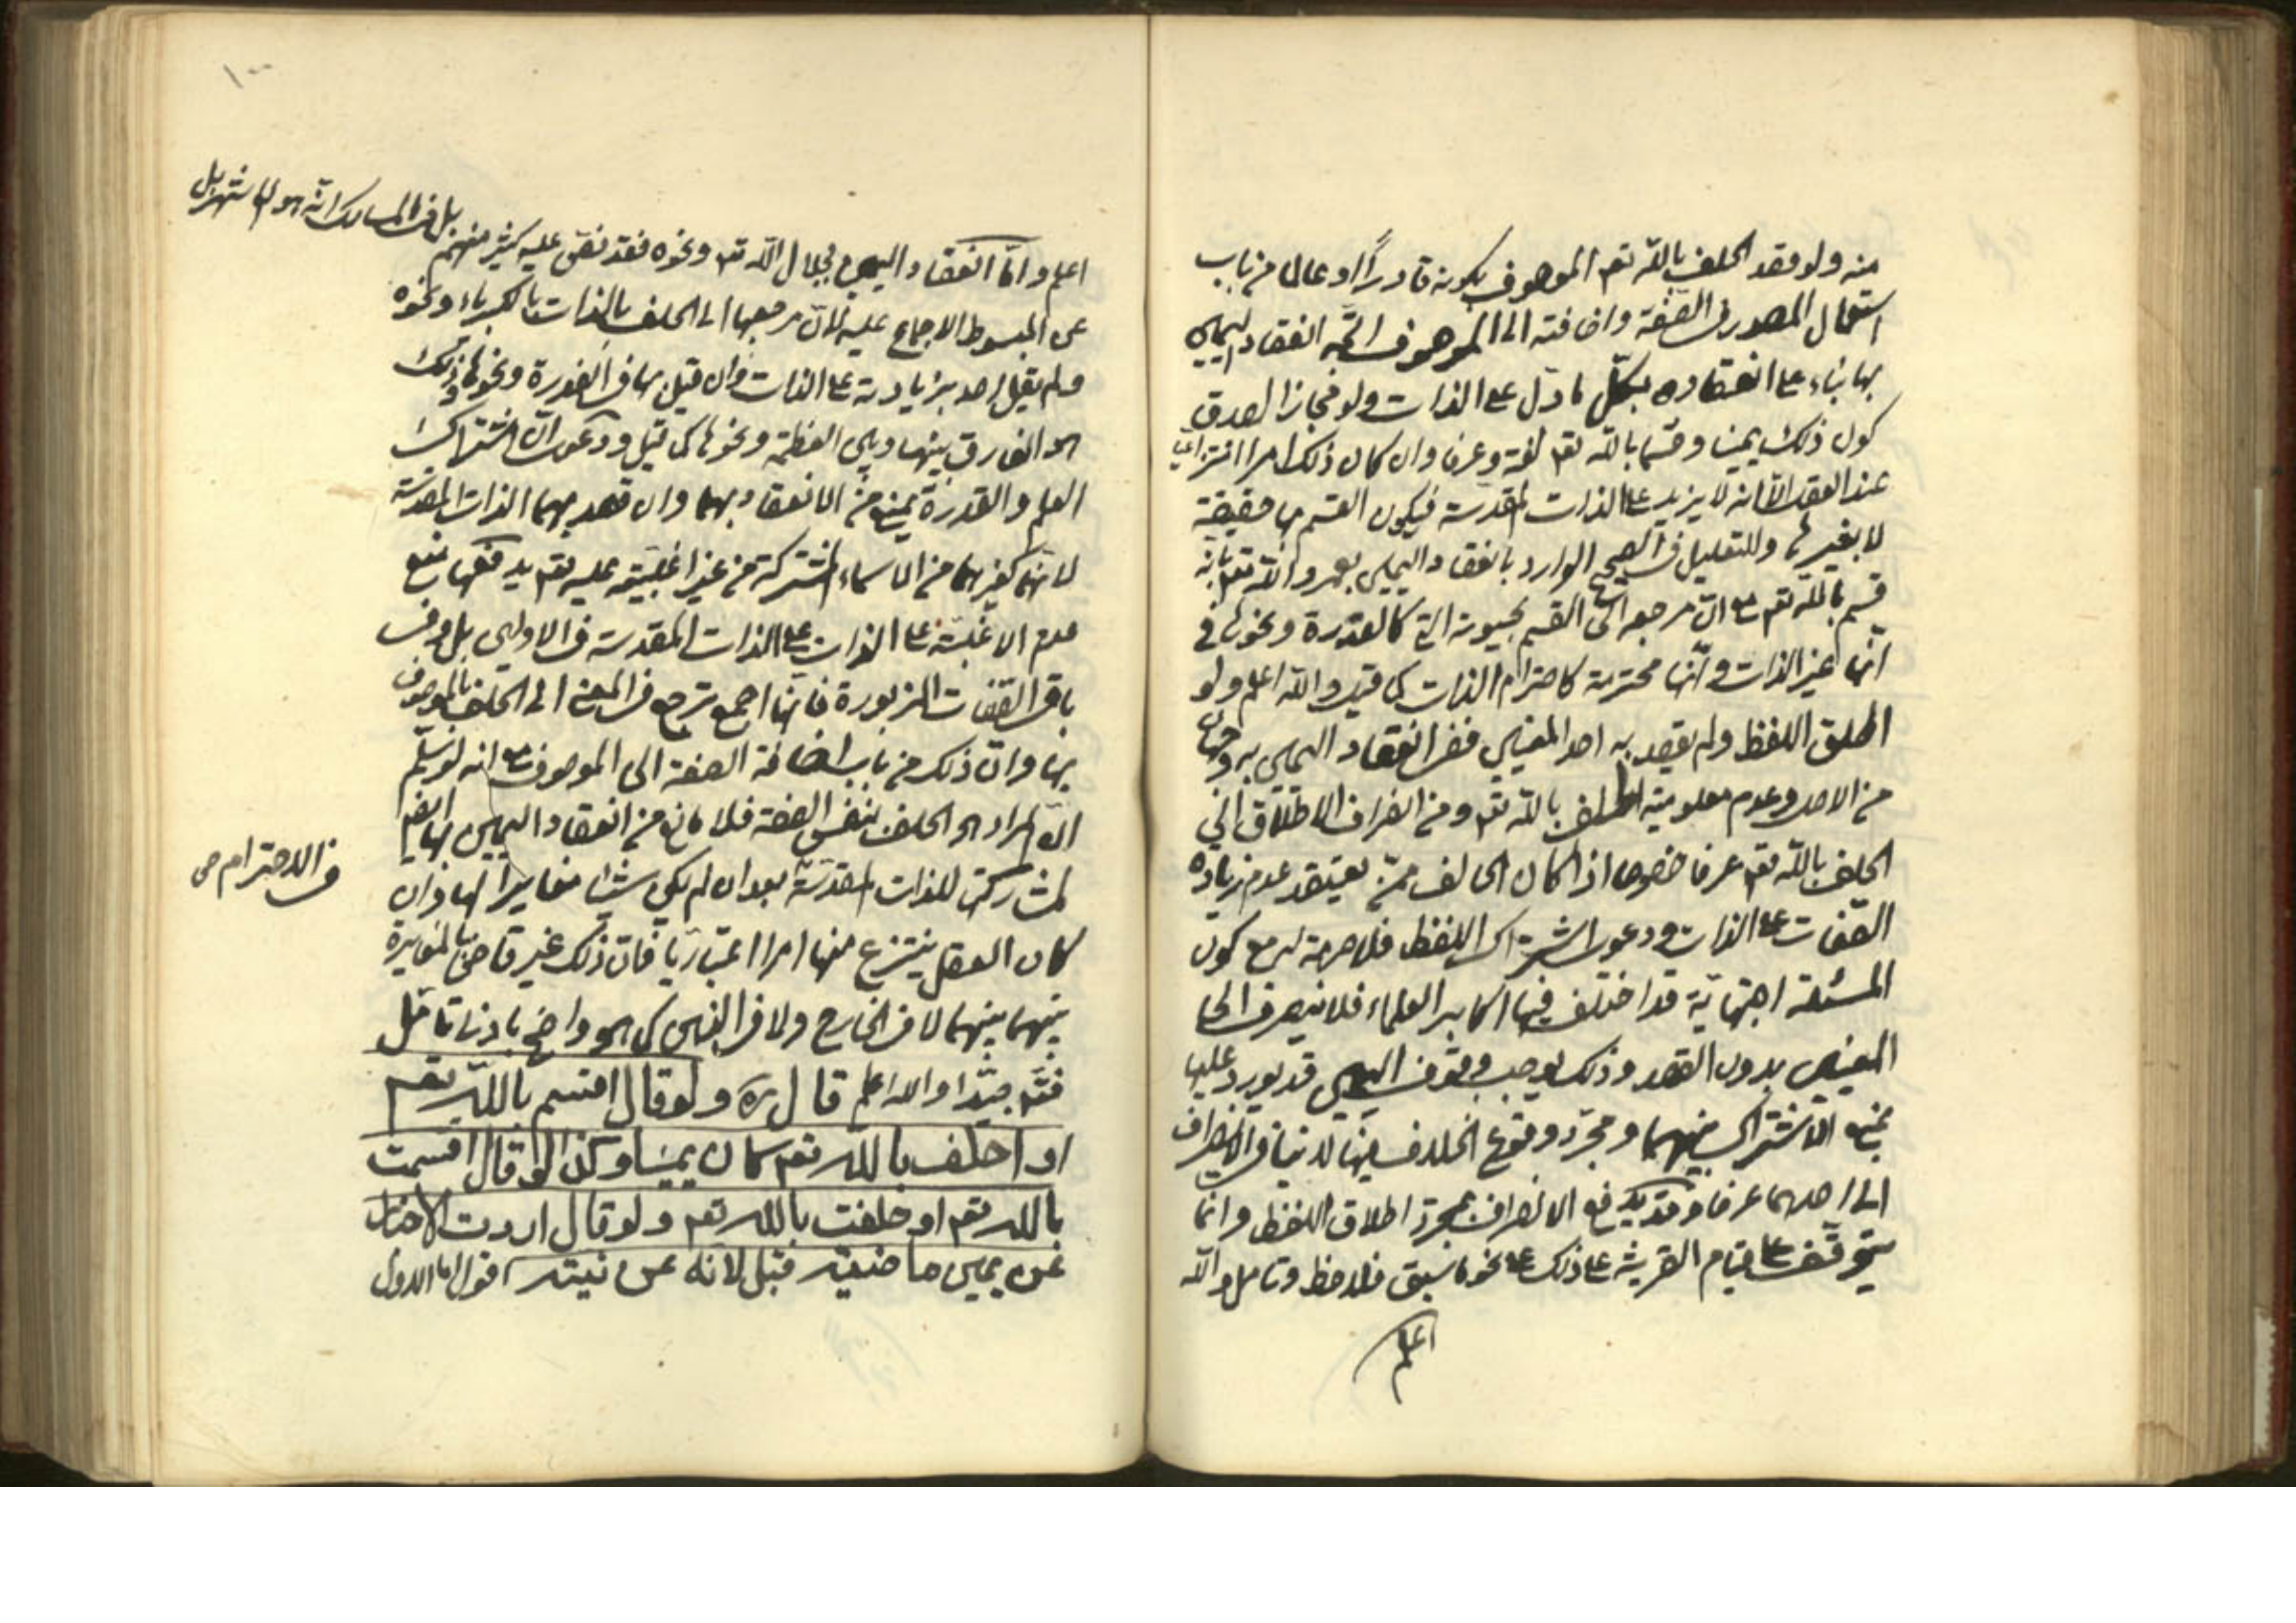 منه ولو قصد الحلف بالله تعم الموصوف بكونه قادراً او عالما من باب
استعمال المصدر في الصفة واضافته الى الموصوف اتجه انعقاد اليمين
بها بناء على انعقاده بكل ما دل على الذات ولو مجازا لصدق
كون ذلك يمينا وقسما بالله تعم لغة وعرفا وان كان ذلك امرا انتزاعيا
عند العقل الا انه لا يزيد على الذات المقدسة فيكون القسم بها حقيقة
لا بغيرها وللتعليل في الصحيح الوارد بانعقاد اليمين بعمرو الله تعم بانه
قسم بالله تعم مع ان مرجعه الى القسم بحيوته التي كالقدرة ونحوها في
انها عين الذات وانها محترمة كاحترام الذات كما قيل والله اعلم ولو
اطلق اللفظ ولم يقصد به احد المعنيين ففي انعقاد اليمين به وجهان
من الاصل وعدم معلومية الحلف بالله تعم ومن انصراف الاطلاق الى
الحلف بالله تعم عرفا خصوصا اذا كان الحالف ممن يعتقد عدم زيادة
الصفات على الذات ودعوى اشتراك اللفظ فلا صرمة له مع كون
المسئلة اجتهادية قد اختلف فيها اكابر العلماء فلا ينصرف الى احد
المعنيين بدون القصد وذلك يوجب وقوف اليمين قد يورد عليها
بمنع الاشتراك بينهما ومجرد وقوع الخلاف فيها لا ينافي الانصراف
الى احدهما عرفا وقد يدفع الانصراف بمجرد اطلاق اللفظ وانما
يتوقف على قيام القرينة على ذلك على نحو ما سبق فلاحظ وتامل والله
اعلم
١٠٠
بل في المسالك انه هو الاشهر بل
اعلم واما انعقاد اليمين بجلال الله تعم ونحوه فقد نص عليه كثير منهم
عن المبسوط الاجماع عليه لان مرجعها الى الحلف بالذات بالكبرياء ونحوه
ولم يقل احد بزيادته على الذات وان قيل بها في القدرة ونحوها وذلك
هو الفارق بينها وبين العظمة ونحوها كما قيل ودعوى ان اشتراك
العلم والقدرة يمنع من الانعقاد بهما وان قصد بهما الذات المقدسة
لانهما كغيرهما من الاسماء المشتركة من غير اغلبيته عليه تعم يدفعها منع
عدم الاغلبية على الذات على الذات المقدسة في الاولين بل وفي
باقي الصفات المزبورة فانها اجمع ترجع في المعنى الى الحلف بالموصوف
بها وان ذلك من باب اضافة الصفة الى الموصوف مع انه لو سلم
ان المراد هو الحلف بنفس الصفة فلا مانع من انعقاد اليمين بها ايضا
لمشاركتها للذات المقدسة بعد ان لم يكن شيئا مغايرا لها وان
في الاحترام صح
كان العقل ينتزع منها امرا اعتباريا فان ذلك غير قاض بالمغايرة
بينهما بينهما لا في الخارج ولا في النفس كما هو واضح بادنى تامل
فتدبر جيدا والله اعلم قال ره ولو قال اقسم بالله تعم
او احلف بالله تعم كان يمينا وكذا لو قال اقسمت
بالله تعم او حلفت بالله تعم ولو قال اردت الاخبار
عن يمين ماضية قبل لانه عن نيته اقول اما الاول